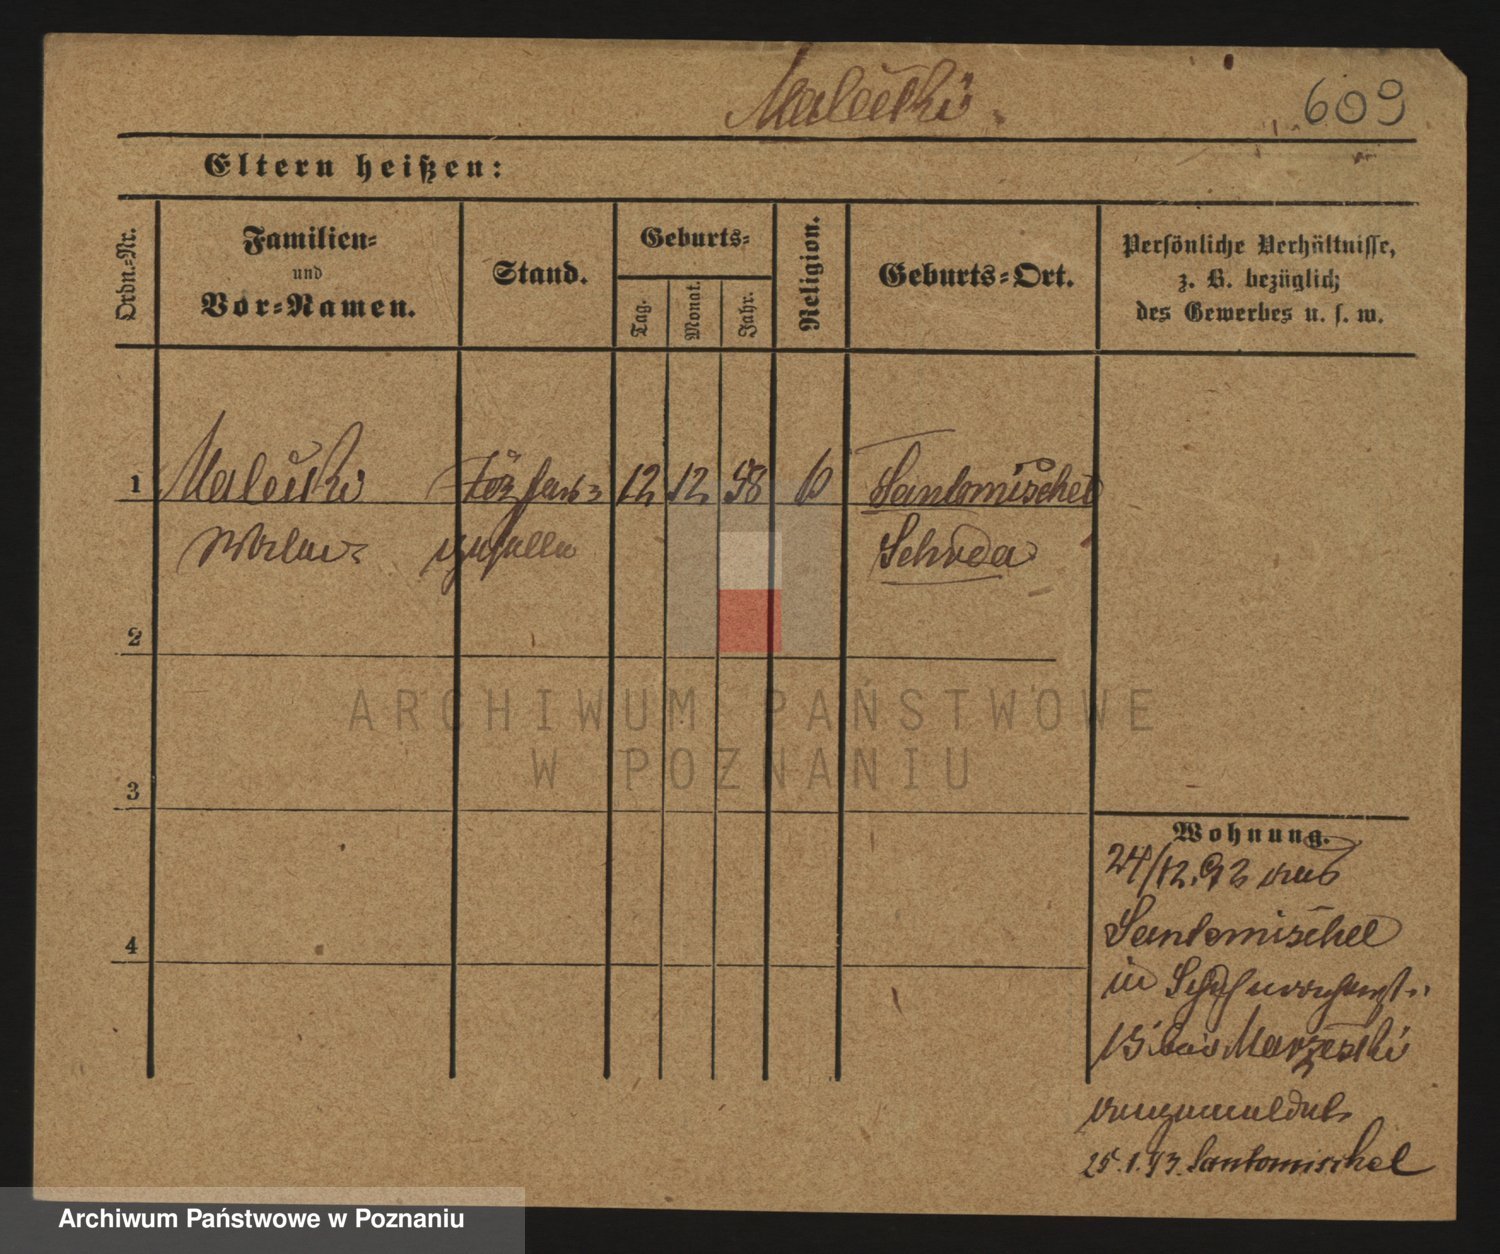 Malecki.
609
Eltern heißen:
Ordn.-Nr.
Familien-
und
Vor-Namen.
Stand.
Geburts-
Tag.
Monat.
Jahr.
Religion.
Geburts-Ort.
Persönliche Verhältnisse,
z. B. bezüglich
des Gewerbes u. s. w.
1 Malecki 12 12 58 Santomischel
Schroda
2
3
4
ARCHIWUM PAŃSTWOWE
W POZNANIU
Wohnung.
24/12.92 aus
Santomischel
in
13 bei
angemeldet
25.1.93. Santomischel
Archiwum Państwowe w Poznaniu